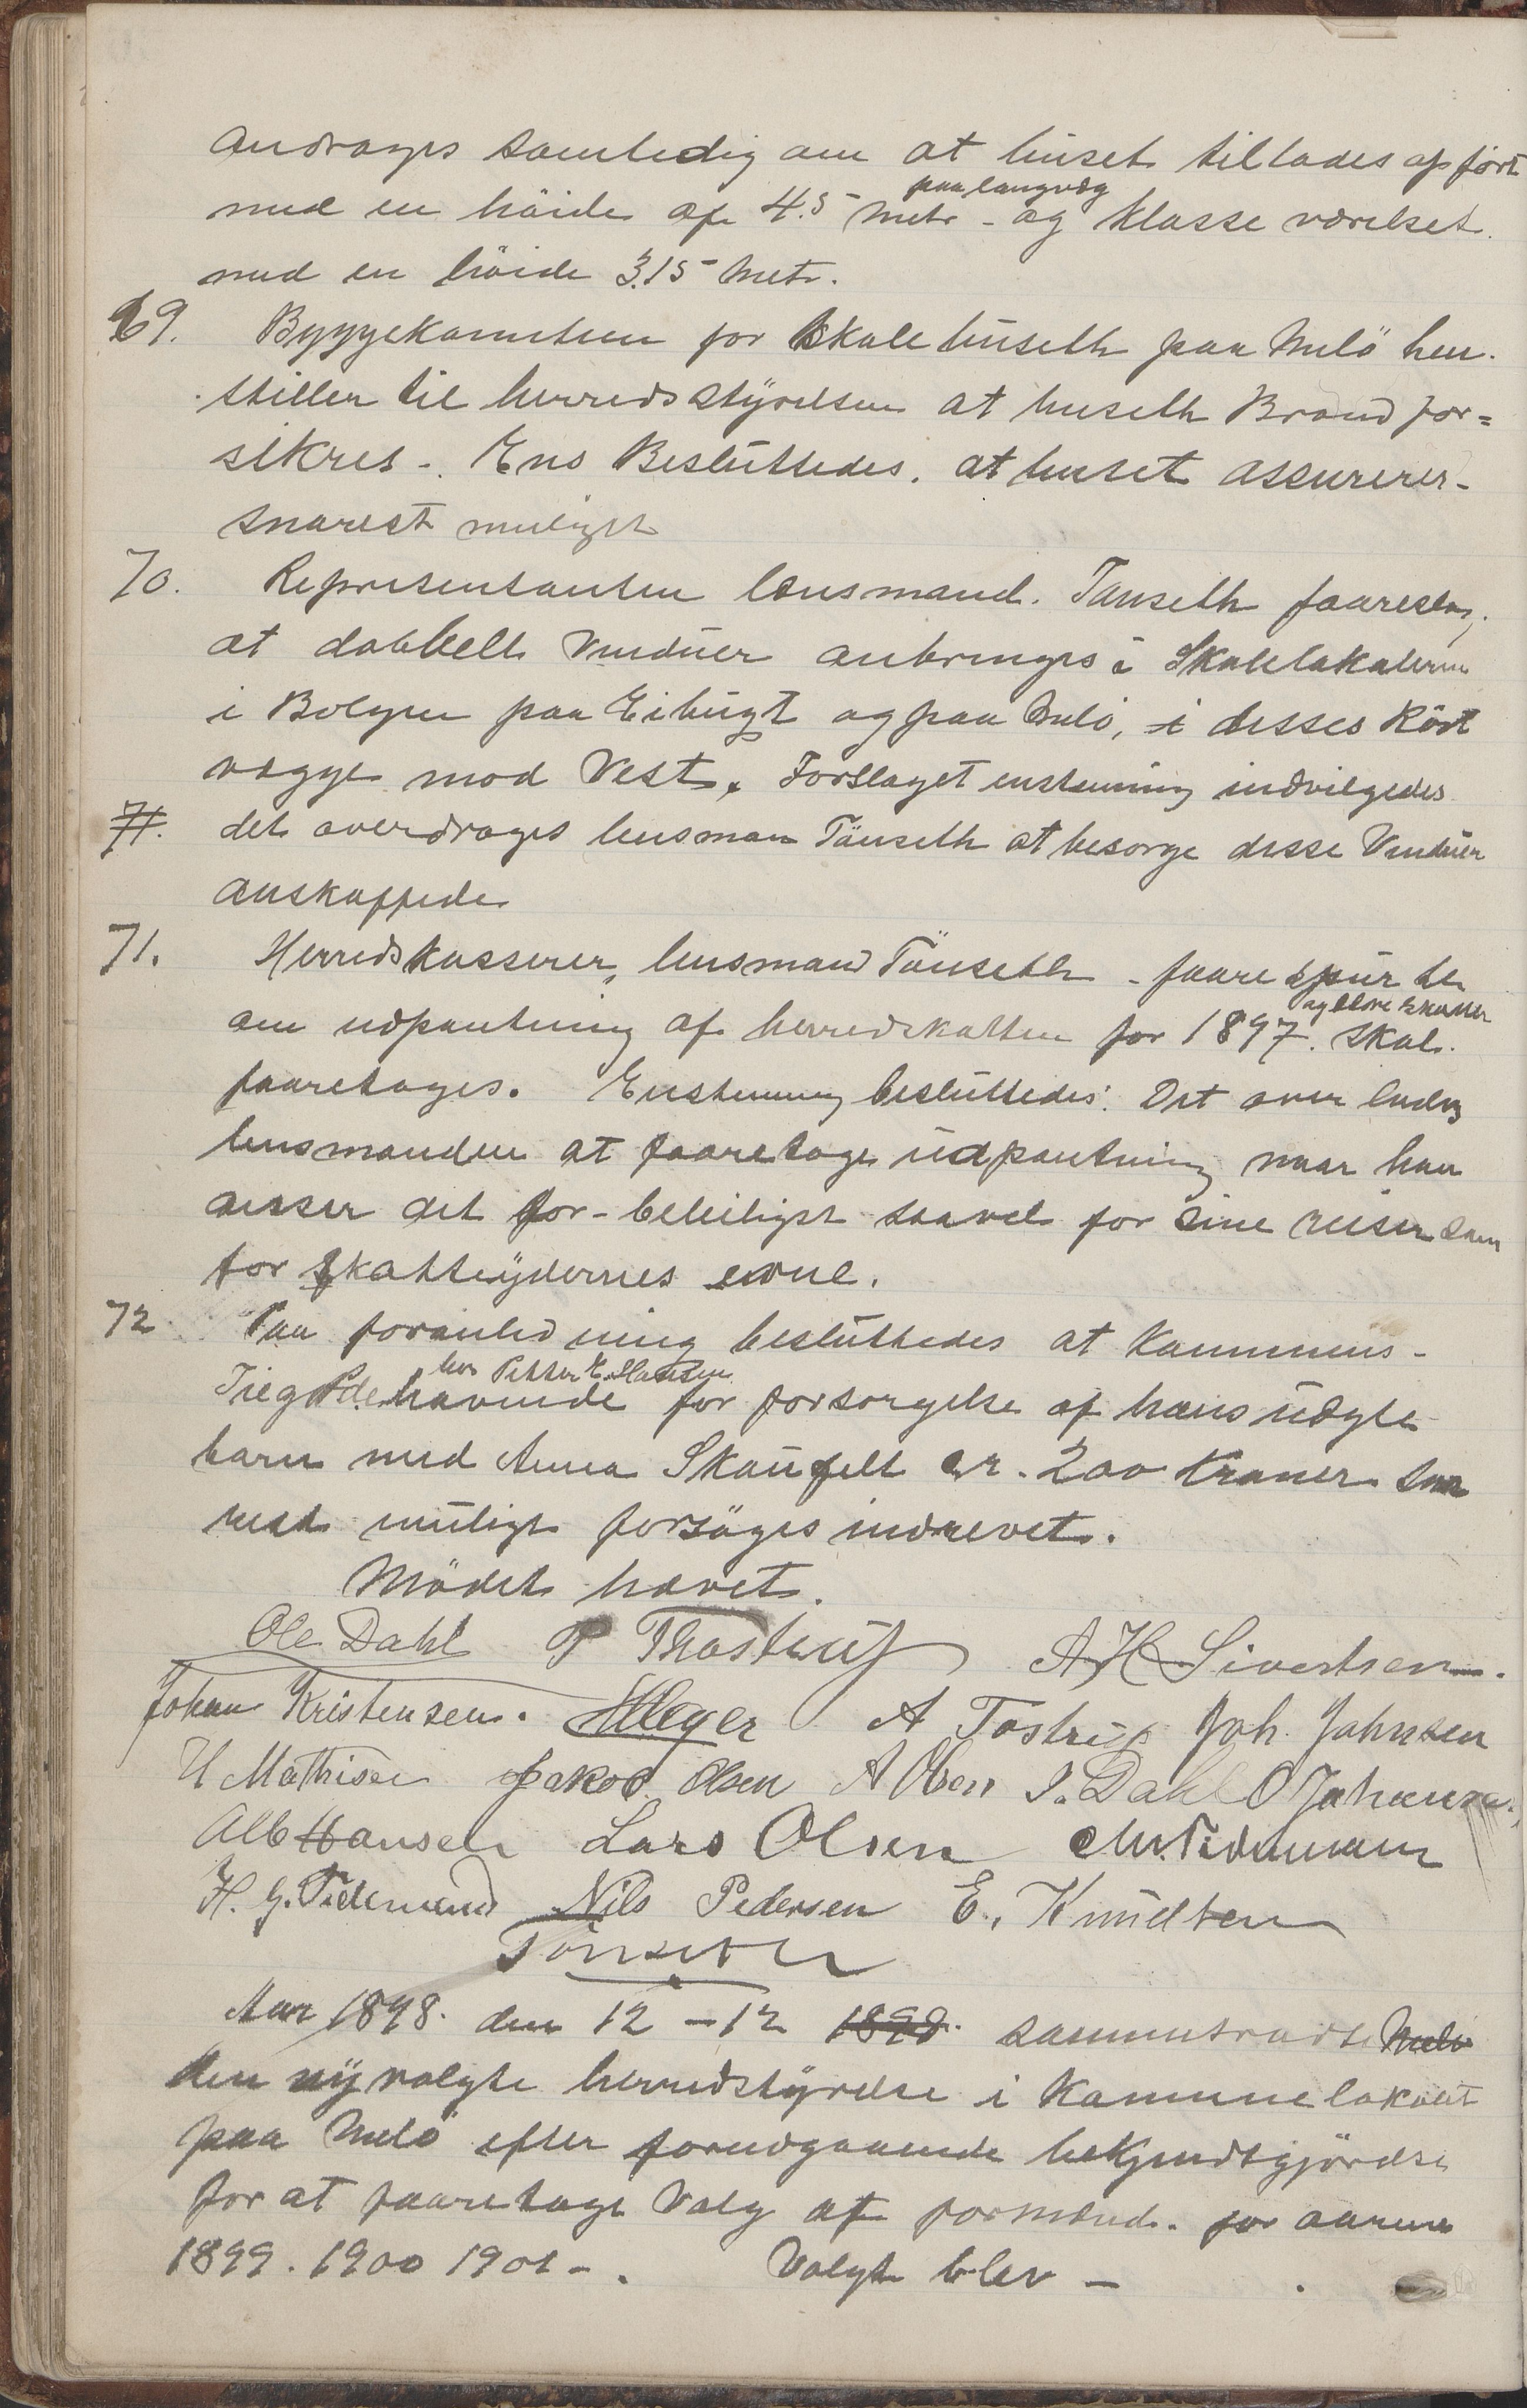 andrages samtidig om at huset tillades opført
med en höide af 4.5 Metr - paa langvæg og Klasse værelset.
med en höide 3.15 Metr.
69. Byggekomiteen for Skolehuseth paa Melö hen-
stiller til herredsstÿrelsen at huseth Brandfor=
sikres -. Ens Beslüttedes. at huset assurerer-
snarest muligst
70. Representanten lensmand. Tönseth faareslog,
at dobbelt Vinduer anbringes i Skolelokalerne
i Bolgen paa Eibügt og paa Melö, i disses Kört
vægge mod Vest. Forslaget enstemmig indvilgedes
71. det overdrages lensman Tönseth at besorge disse Vinduer
anskaffede
71. Herredskasserer, lensmand Tönseth - faarespür te
om udpantning af herredskatten for 1897. og eldre skatter skal.
faaretages. Enstemmig beslüttedes: Det over lades
lensmanden at faaretage üdpantning naar han
anser det for-beleiligst saavel for sine reiser som
for skatteÿdernes evne.
72 Paa foranledning beslüttedes at Kommuns-
Tilgodehavende hos Petter K. Hansen for forsorgelse af hans üægte
barn med Anna Skaufelt er. 200 Kroner sna
rest müligt forsöges indrevet.
Mödet hævet.
Ole Dahl P Thostrüp A H Sivertsen.
Johan Kristensen. HMeyer A Tostrüp Joh. Johnsen
H Mathisen Jakob Olsen A Olsen I. Dahl O Johansen
Alb Hansen Lars Olsen Chr. Tidemann
H. G. Tidemand Nils Pedersen E. Knüdtsen
Tönseth
Aar 1898. den 12 - 12 1898. sammentraadte Melö
den nÿvalgte herredstÿrelse i Kommunelokalet
paa Melö efter forudgaaende bekjendtgjörelse
for at faaretage Valg af formænd. for aarene
1899. 1900 1901 -. Valgt blev -